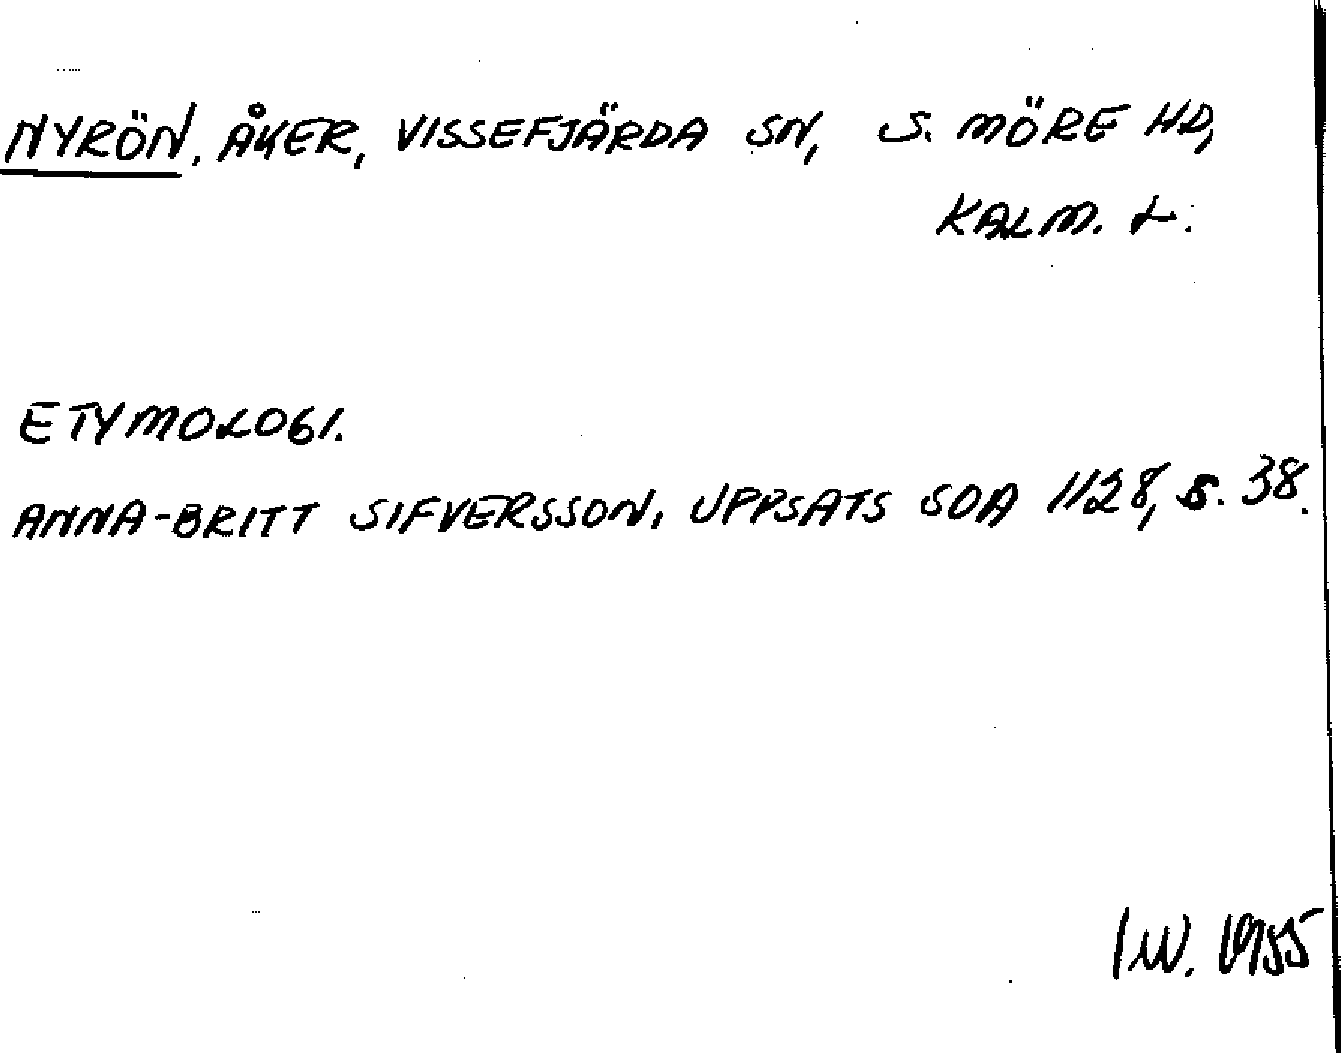 NYRÖN, ÅKER, VISSEFJÄRDA SN, S. MÖRE HD,
KALM. L.
ETYMOLOGI.
ANNA-BRITT SIFVERSSON, UPPSATS SOA 1128, S. 38.
IW. 1955